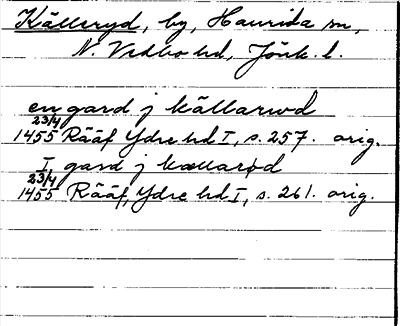 Källeryd, by, Haurida sn,
N. Vedbo hd, Jönk. l.
en gard j källarwd
23/4 1455 Rääf Ydre hd I, s. 257. orig.
I gard j kællarød
23/4 1455 Rääf, Ydre hd I, s. 261. orig.